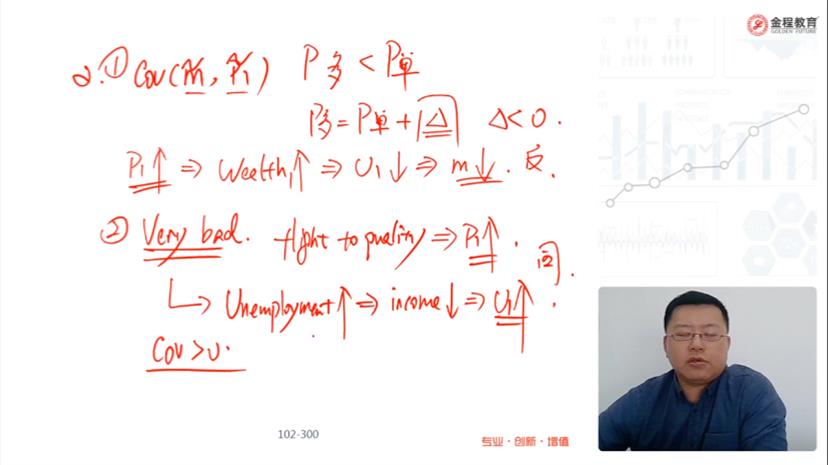 金程教育
GOLDEN FUTURE
2.① Cov(m̃₁, P̃₁) P多 < P单
P多 = P单 + |Δ| Δ<0.
P₁↑ ⇒ Wealth₁↑ ⇒ U₁↓ ⇒ m↓. 反.
② Very bad. flight to quality ⇒ P₁↑.
同.
↳ Unemployment↑ ⇒ income↓ ⇒ U₁↑.
Cov>0.
102-300
专业·创新·增值